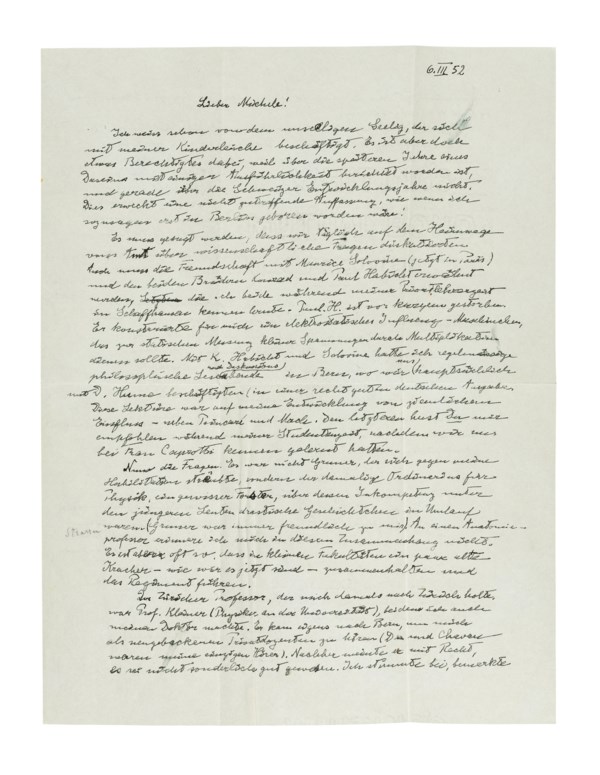 6. III 52
Lieber Michele!
Ich weiss schon von dem unseligen Seelig, der sich
mit meiner Kinderwäsche beschäftigt. Es ist aber doch
etwas Berechtigtes dabei, weil über die späteren Jahre eines
Daseins mit einiger Ausführlichkeit berichtet worden ist,
und gerade über die Schweizer Entwicklungsjahre nicht.
Dies erweckt eine nicht zutreffende Auffassung, wie wenn ich
sozusagen erst in Berlin geboren worden wäre!
Es muss gesagt werden, dass wir täglich auf dem Heimwege
vom Amt über wissenschaftliche Fragen diskutierten
Auch muss die Freundschaft mit Maurice Solovine (jetzt in Paris)
und den beiden Brüdern Konrad und Paul Habicht erwähnt
werden, die ich beide während meiner Privatlehrerzeit
in Schaffhausen kennen lernte. Paul H. ist vor kurzem gestorben.
Er konstruierte für mich ein elektrostatisches Influenz-Maschinchen,
das zur statischen Messung kleiner Spannungen durch Multiplikation
dienen sollte. Mit K. Habicht und Solovine hatte ich regelmässige
philosophische Lese und Diskussions abende in Bern, wo wir uns hauptsächlich
mit D. Hume beschäftigten (in einer recht guten deutschen Ausgabe).
Diese Lektüre war auf meine Entwicklung von ziemlichem
Einfluss – neben Poincaré und Mach. Den letzteren hast Du mir
empfohlen während meiner Studentenzeit, nachdem wir uns
bei Frau Caprotti kennen gelernt hatten.
Nun die Fragen. Es war nicht Gruner, der sich gegen meine
Habilitation sträubte, sondern der damalige Ordinarius für
Physik, ein gewisser Forster, über dessen Inkompetenz unter
den jüngeren Leuten drastische Geschichtchen in Umlauf
waren (Gruner war immer freundlich zu mir) An einen Anatomie-
professor erinnere ich mich in diesem Zusammenhang nicht.
Es ist aber oft so, dass in kleinen Fakultäten ein paar alte
Kracher – wie wir es jetzt sind – zusammenhalten und
das Regiment führen.
Der Zürcher Professor, der mich damals nach Zürich holte,
war Prof. Kleiner (Physiker an der Universität), bei dem ich auch
meinen Doktor machte. Er kam eigens nach Bern, um mich
als neugebackenen Privatdozenten zu hören (Du und Chavan
waren meine einzigen Hörer). Nachher meinte er mit Recht,
es sei nicht sonderlich gut gewesen. Ich stimmte bei, bemerkte